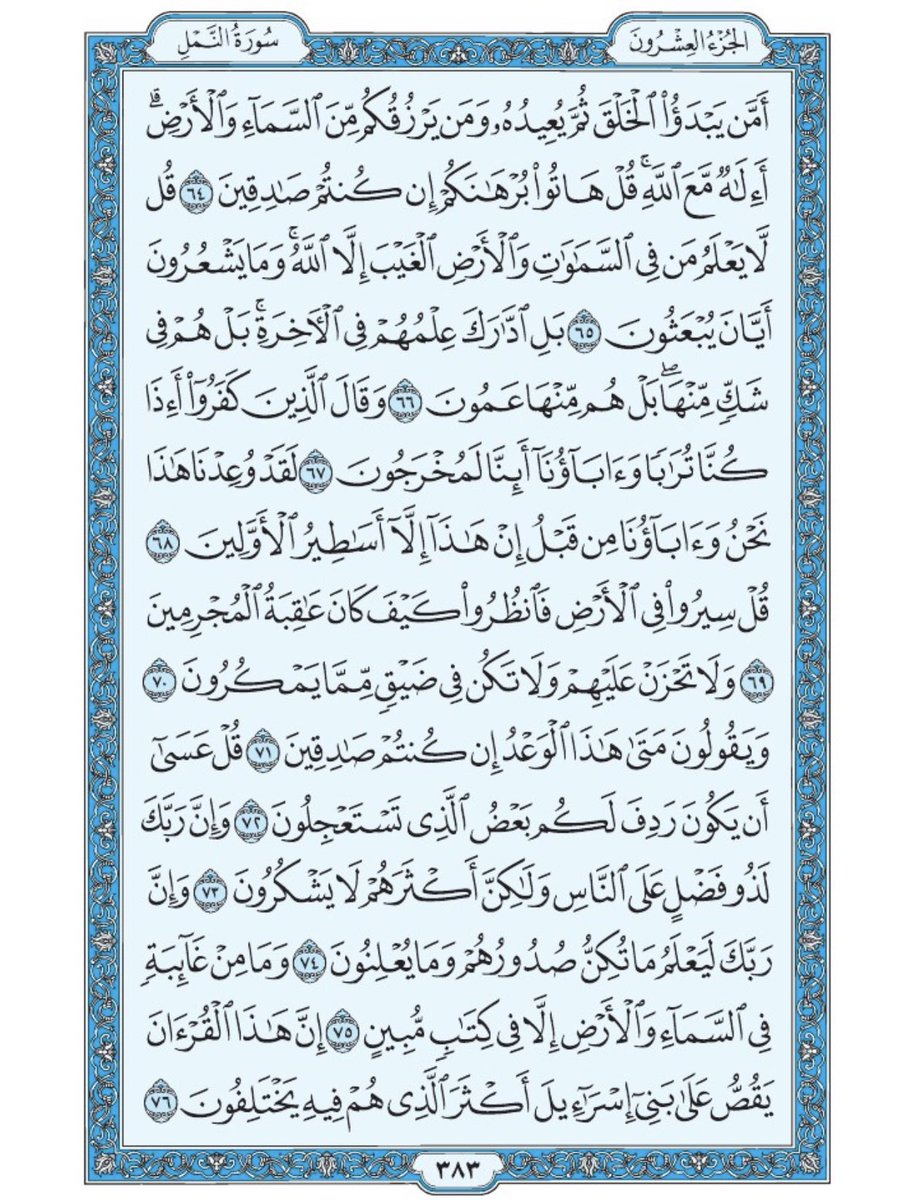 الجُزْءُ العِشْرُونَ
سُورَةُ النَّمْلِ
أَمَّن يَبْدَؤُاْ ٱلْخَلْقَ ثُمَّ يُعِيدُهُۥ وَمَن يَرْزُقُكُم مِّنَ ٱلسَّمَآءِ وَٱلْأَرْضِۗ
أَءِلَٰهٌ مَّعَ ٱللَّهِۚ قُلْ هَاتُواْ بُرْهَٰنَكُمْ إِن كُنتُمْ صَٰدِقِينَ ٦٤ قُل
لَّا يَعْلَمُ مَن فِى ٱلسَّمَٰوَٰتِ وَٱلْأَرْضِ ٱلْغَيْبَ إِلَّا ٱللَّهُۚ وَمَا يَشْعُرُونَ
أَيَّانَ يُبْعَثُونَ ٦٥ بَلِ ٱدَّٰرَكَ عِلْمُهُمْ فِى ٱلْأَخِرَةِۚ بَلْ هُمْ فِى
شَكٍّ مِّنْهَاۖ بَلْ هُم مِّنْهَا عَمُونَ ٦٦ وَقَالَ ٱلَّذِينَ كَفَرُوٓاْ أَءِذَا
كُنَّا تُرَٰبًا وَءَابَآؤُنَآ أَئِنَّا لَمُخْرَجُونَ ٦٧ لَقَدْ وُعِدْنَا هَٰذَا
نَحْنُ وَءَابَآؤُنَا مِن قَبْلُ إِنْ هَٰذَآ إِلَّآ أَسَٰطِيرُ ٱلْأَوَّلِينَ ٦٨
قُلْ سِيرُواْ فِى ٱلْأَرْضِ فَٱنظُرُواْ كَيْفَ كَانَ عَٰقِبَةُ ٱلْمُجْرِمِينَ
٦٩ وَلَا تَحْزَنْ عَلَيْهِمْ وَلَا تَكُن فِى ضَيْقٍ مِّمَّا يَمْكُرُونَ ٧٠
وَيَقُولُونَ مَتَىٰ هَٰذَا ٱلْوَعْدُ إِن كُنتُمْ صَٰدِقِينَ ٧١ قُلْ عَسَىٰٓ
أَن يَكُونَ رَدِفَ لَكُم بَعْضُ ٱلَّذِى تَسْتَعْجِلُونَ ٧٢ وَإِنَّ رَبَّكَ
لَذُو فَضْلٍ عَلَى ٱلنَّاسِ وَلَٰكِنَّ أَكْثَرَهُمْ لَا يَشْكُرُونَ ٧٣ وَإِنَّ
رَبَّكَ لَيَعْلَمُ مَا تُكِنُّ صُدُورُهُمْ وَمَا يُعْلِنُونَ ٧٤ وَمَا مِنْ غَآئِبَةٍ
فِى ٱلسَّمَآءِ وَٱلْأَرْضِ إِلَّا فِى كِتَٰبٍ مُّبِينٍ ٧٥ إِنَّ هَٰذَا ٱلْقُرْءَانَ
يَقُصُّ عَلَىٰ بَنِىٓ إِسْرَٰٓءِيلَ أَكْثَرَ ٱلَّذِى هُمْ فِيهِ يَخْتَلِفُونَ ٧٦
٣٨٣